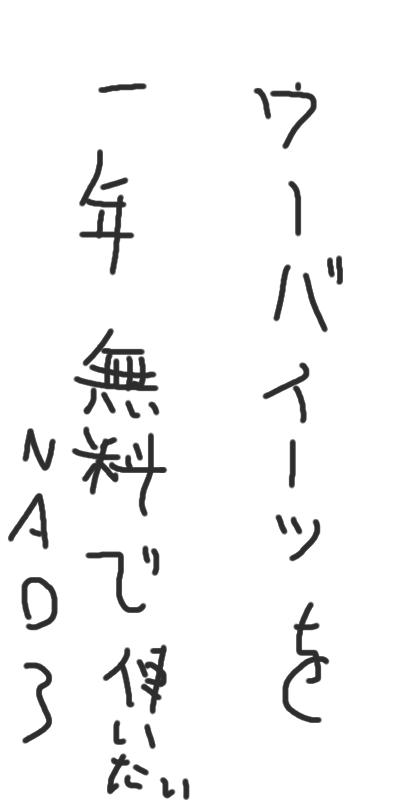 ウーバイーツを
一年無料で使いたい
NAD3